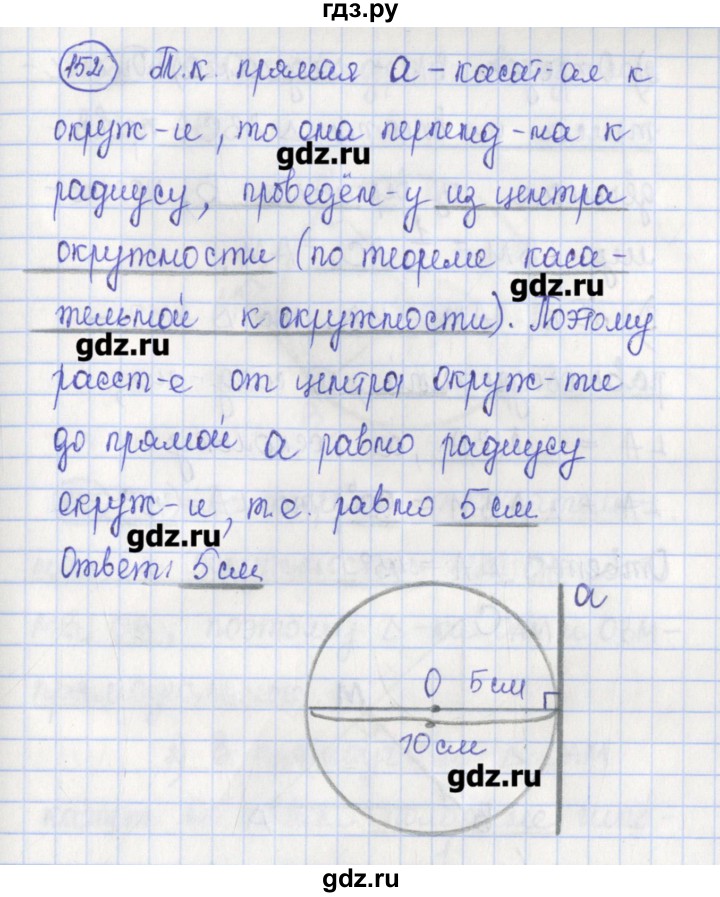 гдз.ру
152 Т.к. прямая а - касат-ая к
окруж-и, то она перпенд-на к
gdz.ru
радиусу, проведён-у из центра
окружности (по теореме каса-
gdz.ru
тельной к окружности). Поэтому
gdz.ru
расст-е от центра окруж-ти
до прямой а равно радиусу
окруж-и, т.е. равно 5 см
gdz.ru
Ответ: 5 см
а
О 5 см
10 см
gdz.ru
gdz.ru